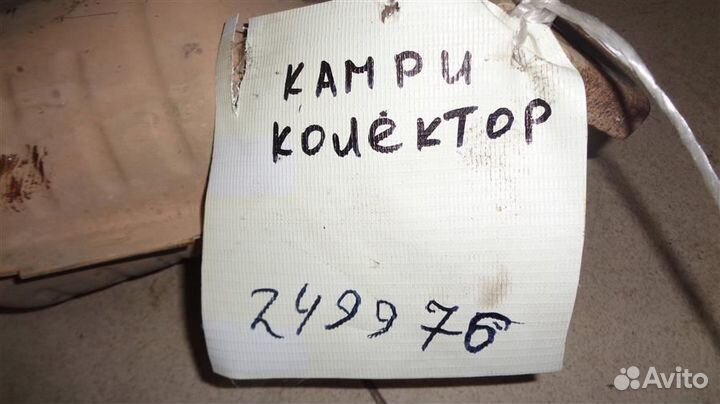 КАМРИ
КОЛЕКТОР
249976
Avito